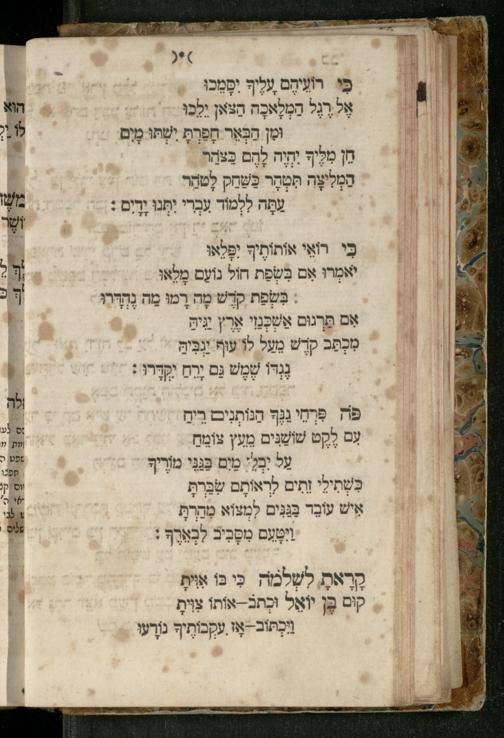 כִּי רוֹעֵיהֶם עָלֶיךָ יִסָּמֵכוּ
אֶל רֶגֶל הַמְלָאכָה הַצֹּאן יֵלֵכוּ
וּמִן הַבְּאֵר חָפַרְתָּ יִשְׁתּוּ מָיִם
חֵן מִלֶּיךָ יִהְיֶה לָהֶם כַּצֹּהַר
הַמְלִיצָה תִּטְהָר כַּשַּׁחַק לָטֹהַר
עַתָּה לִלְמוֹד עִבְרִי יִתְּנוּ יָדָיִם :
כִּי רוֹאֵי אוֹתוֹתֶיךָ יִפָּלֵאוּ
יֹאמְרוּ אִם בִּשְׂפַת חוֹל נוֹעַם מָלֵאוּ
בִּשְׂפַת קֹדֶשׁ מָה רָמוּ מַה נֶהְדָּרוּ :
אִם תַּרְגּוּם אַשְׁכְּנַזִי אֶרֶץ יַגִּיהַּ
מִכְתַּב קֹדֶשׁ מֵעַל לוֹ עוּף יַגְבִּיהַּ
נֶגְדּוֹ שֶׁמֶשׁ גַּם יָרֵחַ יִקְדָּרוּ :
פֹּה פִּרְחֵי גַנֶּךָ הַנּוֹתְנִים רֵיחַ
עִם לֶקֶט שׁוֹשַׁנִּים מֵעֵץ צוֹמֵחַ
עַל יִבְלֵי מַיִם בְּגַנֵּי מוֹרֶיךָ
כִּשְׁתִילֵי זֵתִים לִרְאוֹתָם שִׂבַּרְתָּ
אִישׁ עוֹבֵד בַּגַּנִּים לִמְצוֹא מִהַרְתָּ
וַיִּטָּעֵם מִסָּבִיב לִבְאֵרֶךָ :
קָרָאתָ לִשְׁלֹמֹה כִּי בּוֹ אִוִּיתָ
קוּם בֶּן יוֹאֵל וּכְתֹב–אוֹתוֹ צִוִּיתָ
וַיִּכְתּוֹב–אָז עִקְבוֹתֶיךָ נוֹדָעוּ